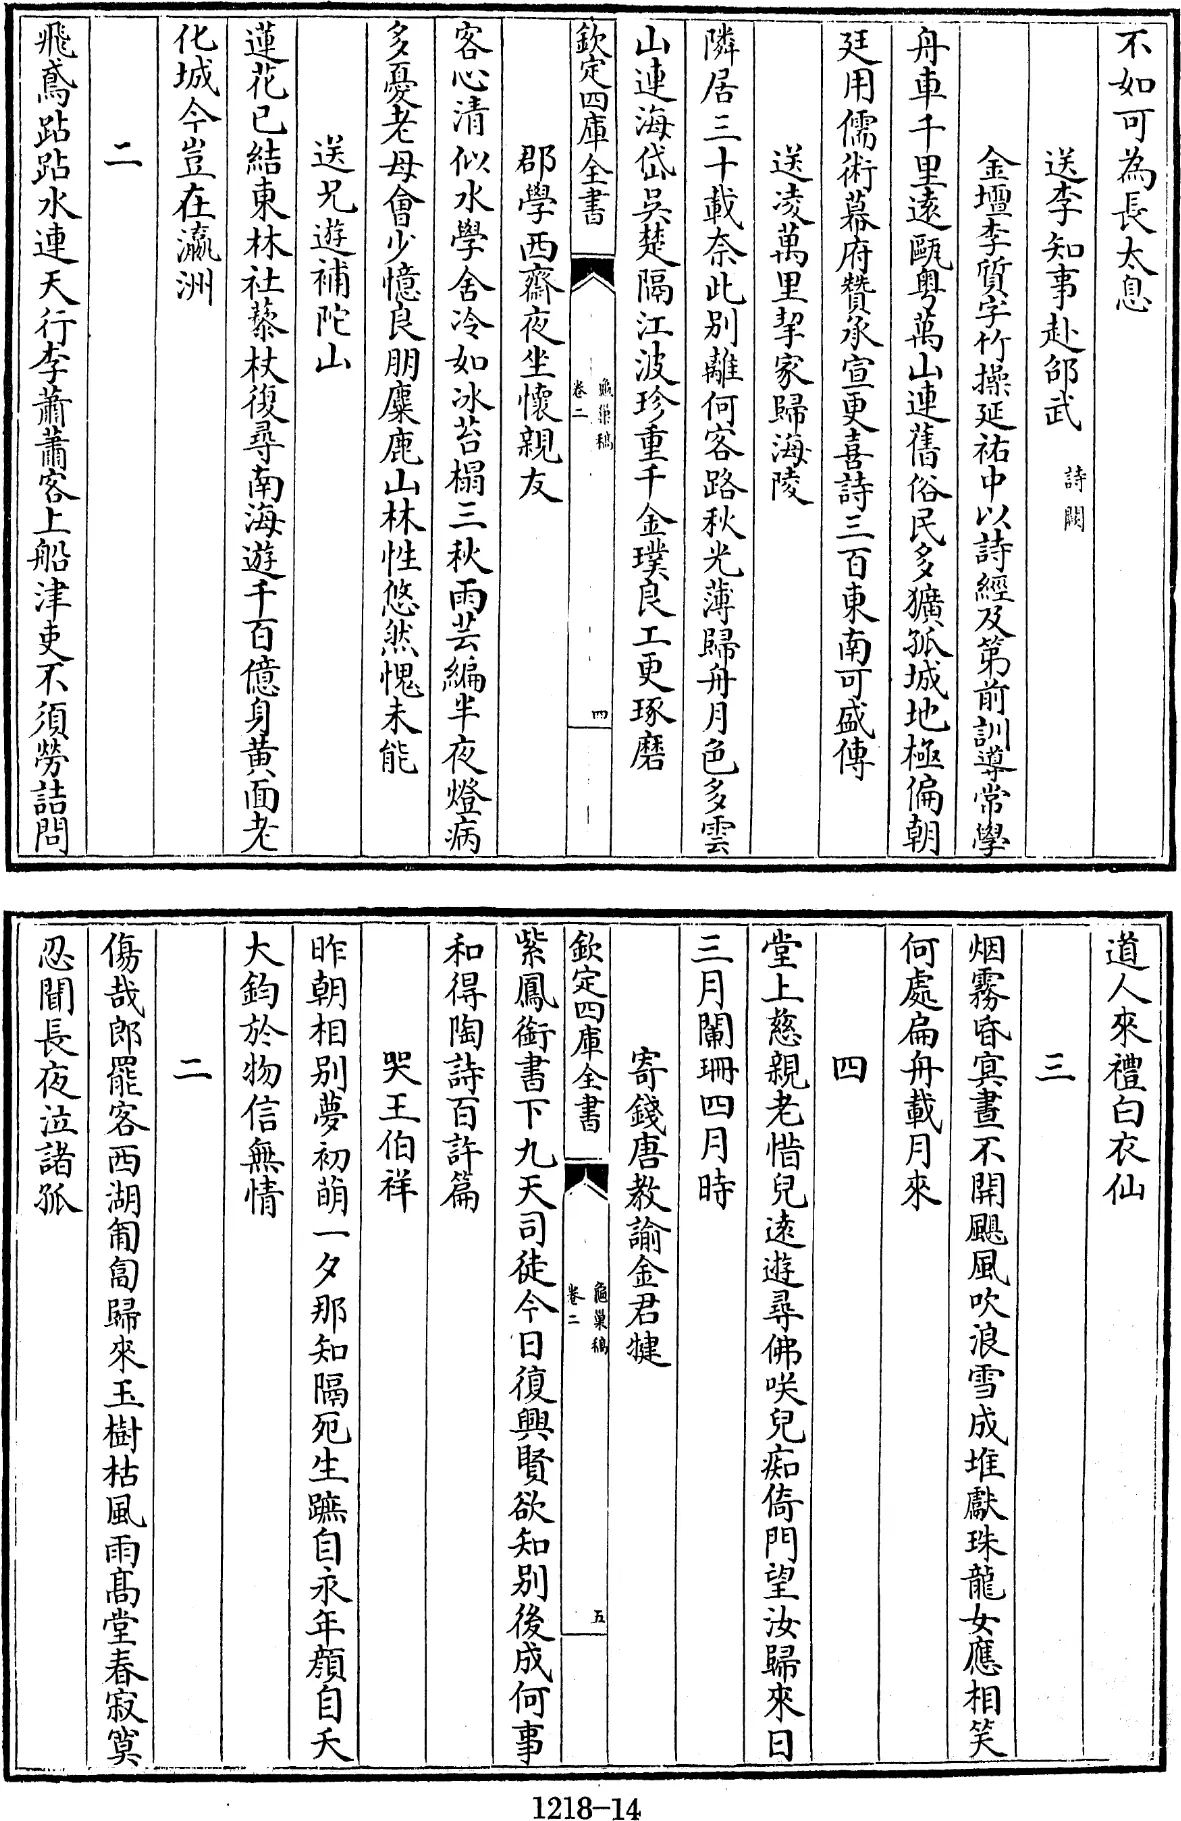 不如可為長太息
送李知事赴邵武 詩闕
金壇李質字竹操延祐中以詩經及第前訓導常學
舟車千里遠甌粤萬山連舊俗民多獷孤城地極偏朝
廷用儒術幕府贊承宣更喜詩三百東南可盛傳
送凌萬里挈家歸海陵
隣居三十載奈此别離何客路秋光薄歸舟月色多雲
山連海岱吳楚隔江波珍重千金璞良工更琢磨
欽定四庫全書 龜巢稿 卷二 四
郡學西齋夜坐懷親友
客心清似水學舍冷如冰苔榻三秋雨芸編半夜燈病
多憂老母會少憶良朋麋鹿山林性悠然愧未能
送兄遊補陀山
蓮花已結東林社藜杖復尋南海遊千百億身黄面老
化城今豈在瀛洲
二
飛鳶跕跕水連天行李蕭蕭客上船津吏不須勞詰問
道人來禮白衣仙
三
烟霧昏冥晝不開颶風吹浪雪成堆獻珠龍女應相笑
何處扁舟載月來
四
堂上慈親老惜兒遠遊尋佛咲兒痴倚門望汝歸來日
三月闌珊四月時
寄錢唐教諭金君犍
欽定四庫全書 龜巢稿 卷二 五
紫鳳銜書下九天司徒今日復興賢欲知别後成何事
和得陶詩百許篇
哭王伯祥
昨朝相别夢初萌一夕那知隔死生蹠自永年顔自夭
大鈞於物信無情
二
傷哉郎罷客西湖匍匐歸來玉樹枯風雨髙堂春寂寞
忍聞長夜泣諸孤
1218-14